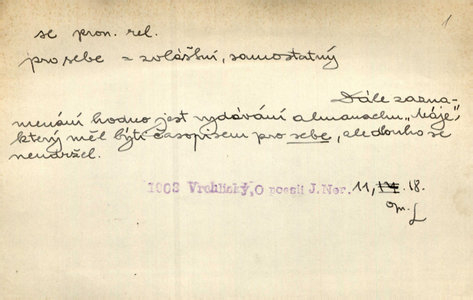 1
se pron. rel.
pro sebe = zvláštní, samostatný
Dále zazna-
menání hodno jest vydávání almanachu „Máje",
který měl býti časopisem pro sebe, ale dlouho se
neudržel.
1903 Vrchlický, O poesii J. Ner. 11, 14. 18.